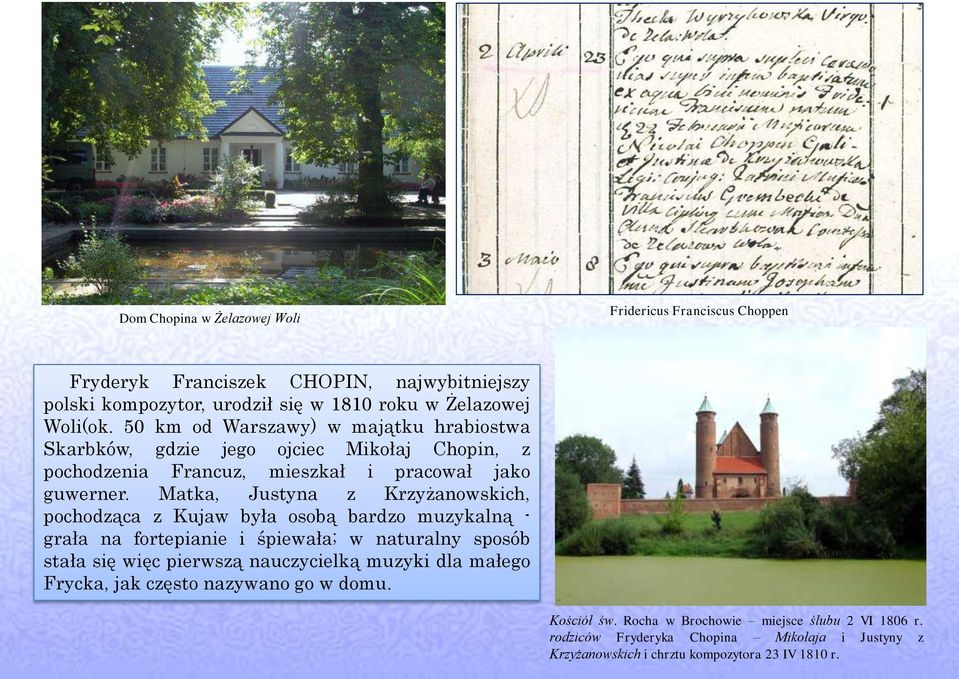 Thecka Wyrzykowska Virgo.
de Zela: Wola.
2 Aprili 23 Ego qui supra supplevi
super infan baptisatum
ex aqua bini nominis Fride-
ricum Franciscum natum
Musicorum
Nicolai Choppen Gali-
et Justina de Krzyżanowska
Legi: Conjug: Patrini
Franciscus Grembecki de
Villa Cum
Skarbkowna
de Zelazowa Wola.
3 Maio 8 Ego qui supra baptisavi infan
Justinam Josepham
Dom Chopina w Żelazowej Woli
Fridericus Franciscus Choppen
Fryderyk Franciszek CHOPIN, najwybitniejszy
polski kompozytor, urodził się w 1810 roku w Żelazowej
Woli(ok. 50 km od Warszawy) w majątku hrabiostwa
Skarbków, gdzie jego ojciec Mikołaj Chopin, z
pochodzenia Francuz, mieszkał i pracował jako
guwerner. Matka, Justyna z Krzyżanowskich,
pochodząca z Kujaw była osobą bardzo muzykalną -
grała na fortepianie i śpiewała; w naturalny sposób
stała się więc pierwszą nauczycielką muzyki dla małego
Frycka, jak często nazywano go w domu.
Kościół św. Rocha w Brochowie – miejsce ślubu 2 VI 1806 r.
rodziców Fryderyka Chopina – Mikołaja i Justyny z
Krzyżanowskich i chrztu kompozytora 23 IV 1810 r.